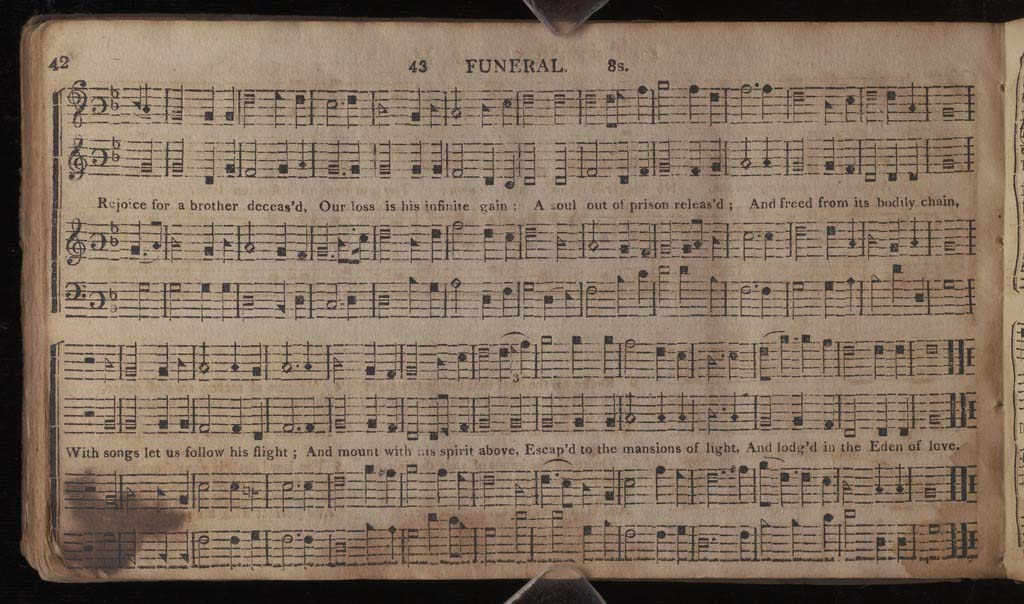 42
43 FUNERAL. 8s.
Rejoice for a brother deceas'd, Our loss is his infinite gain : A soul out of prison releas'd ; And freed from its bodily chain,
3
With songs let us follow his flight ; And mount with his spirit above, Escap'd to the mansions of light, And lodg'd in the Eden of love.